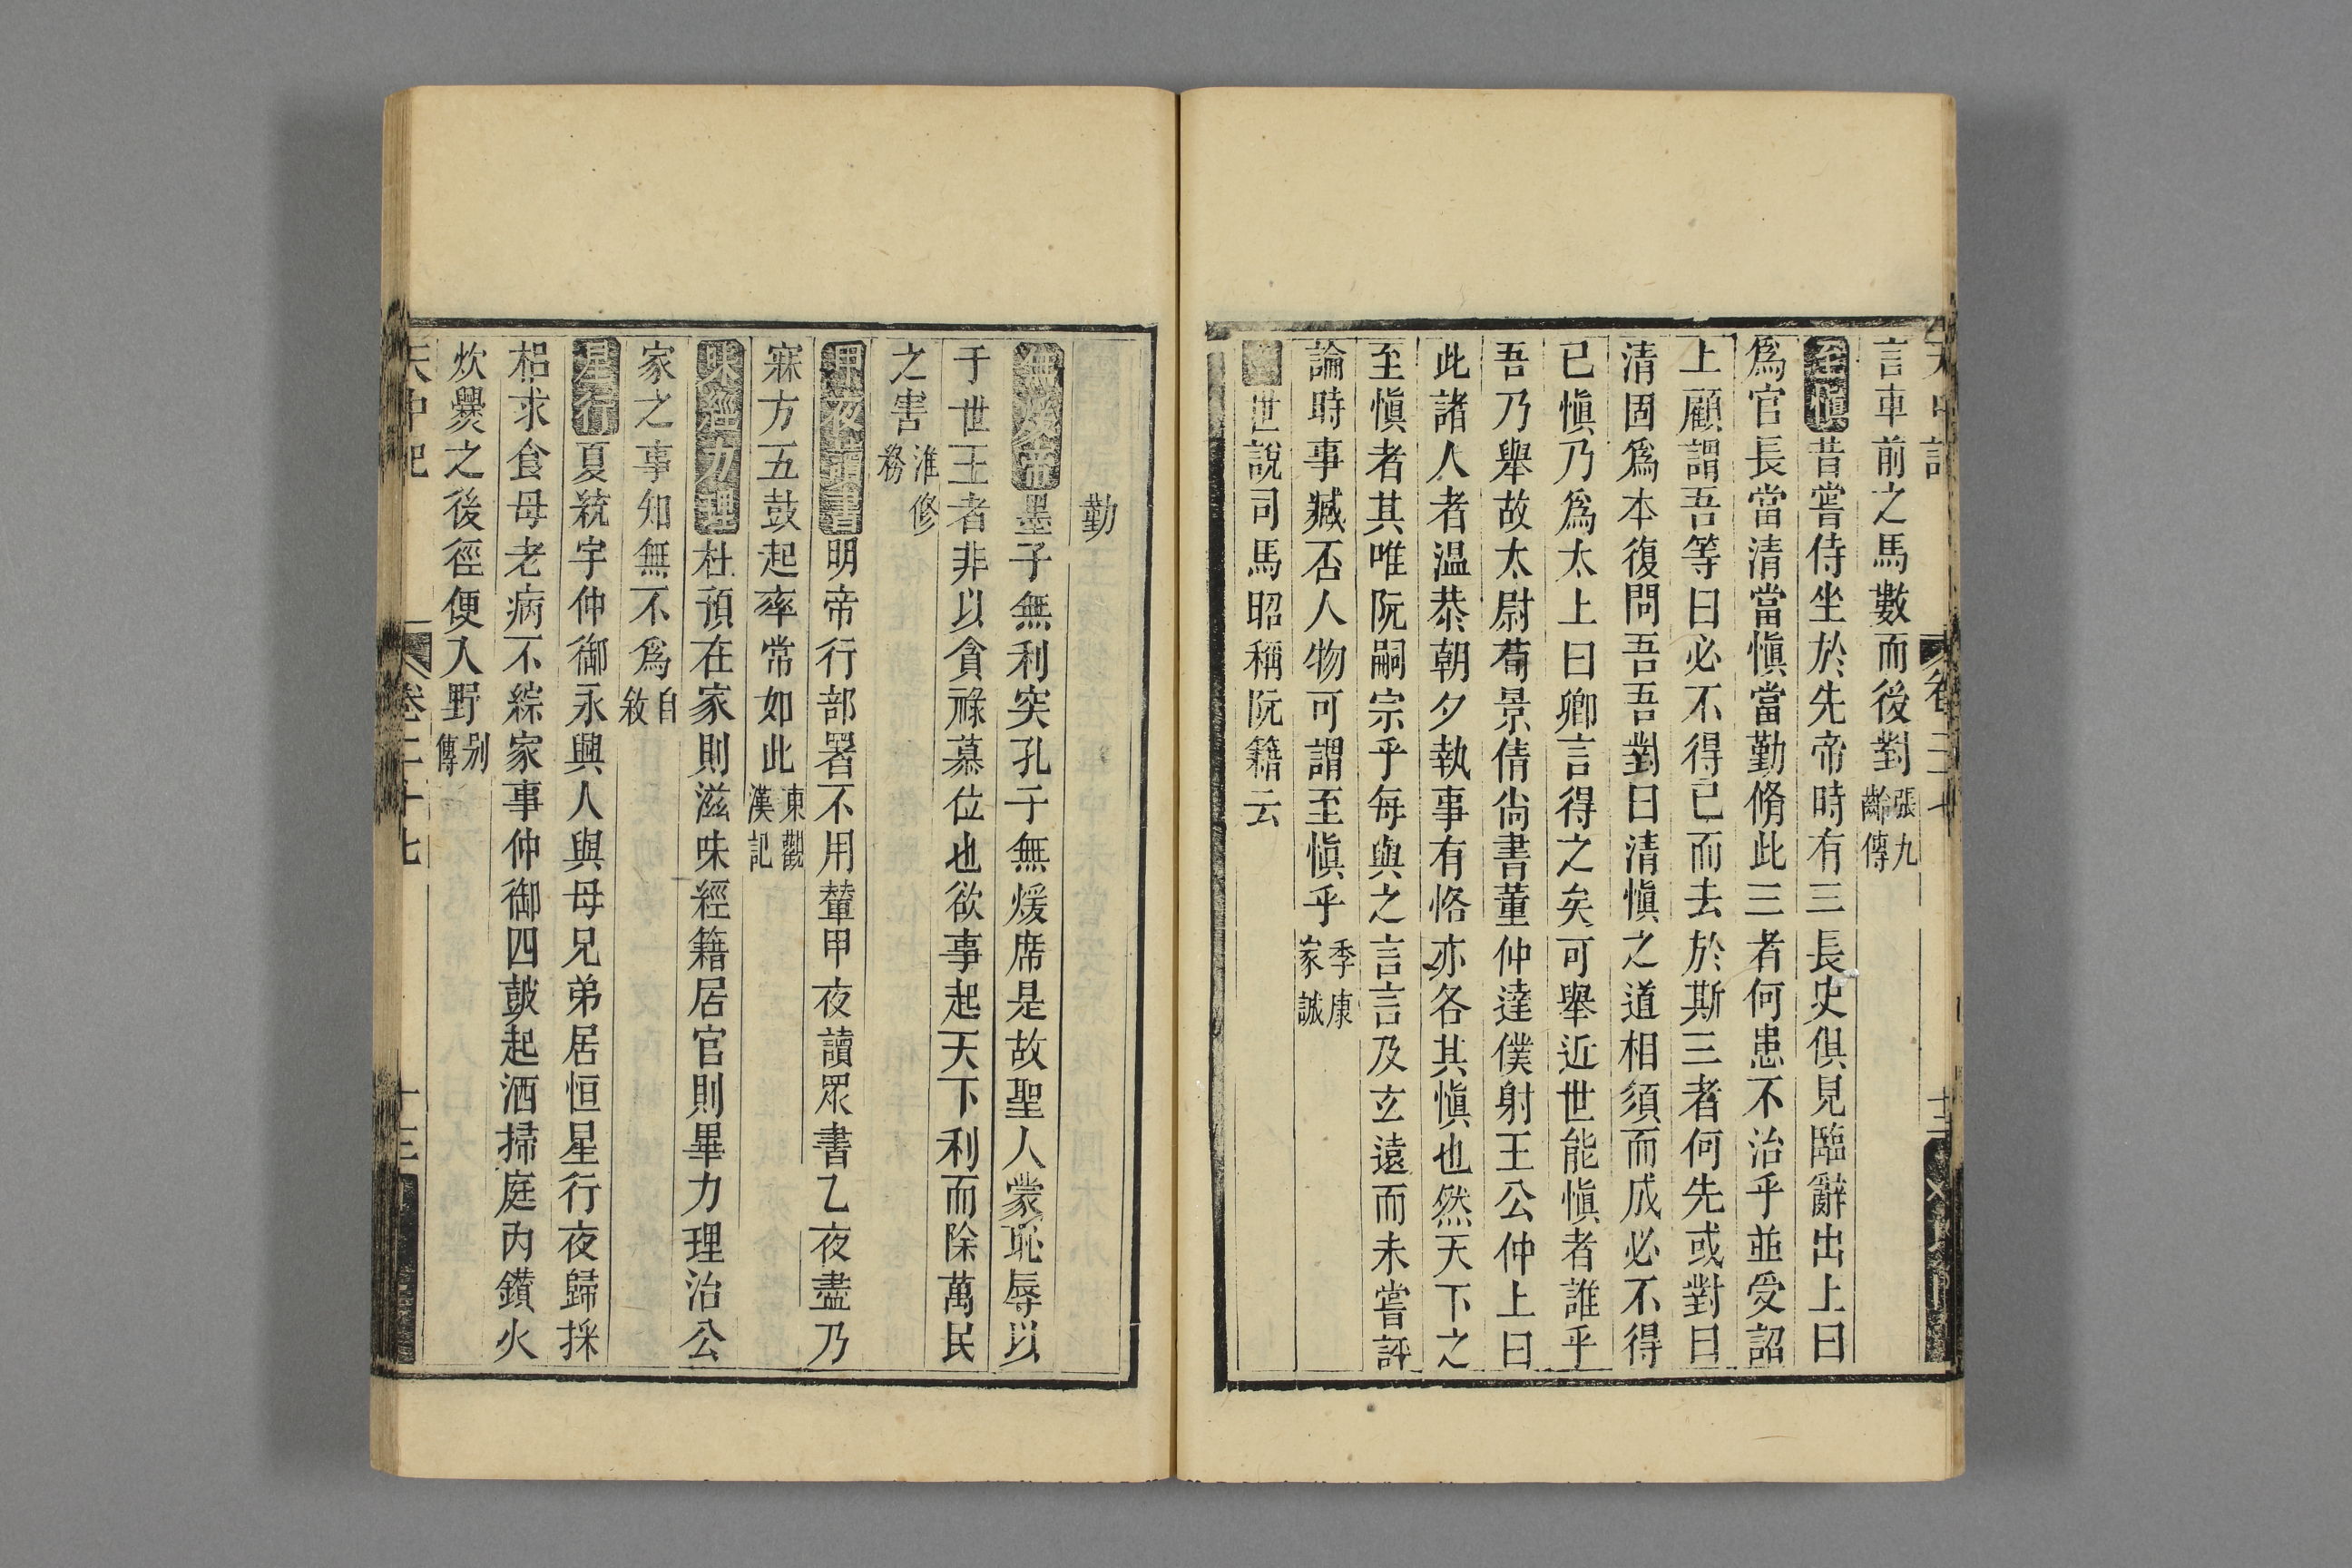 言車前之馬數而後對張九齡傳
至愼昔嘗侍坐於先帝時有三長史俱見臨辭出上曰
爲官長當清當愼當勤脩此三者何患不治乎並受詔
上顧謂吾等曰必不得已而去於斯三者何先或對曰
清固爲本復問吾吾對曰清愼之道相須而成必不得
已愼乃爲太上曰卿言得之矣可舉近世能愼者誰乎
吾乃舉故太尉荀景倩尚書董仲達僕射王公仲上曰
此諸人者温恭朝夕執事有恪亦各其愼也然天下之
至愼者其唯阮嗣宗乎每與之言言及玄遠而未嘗評
論時事臧否人物可謂至愼乎季康家誡
世說司馬昭稱阮籍云
勤
無煖席墨子無利突孔子無煖席是故聖人蒙恥辱以
于世主者非以貪祿慕位也欲事起天下利而除萬民
之害淮修務
甲夜讀書明帝行部署不用輦甲夜讀眾書乙夜盡乃
寐方五鼓起率常如此東觀漢記
味經力理杜預在家則滋味經籍居官則畢力理治公
家之事知無不爲自敘
星行夏統字仲御永興人與母兄弟居恒星行夜歸採
梠求食母老病不綜家事仲御四鼓起洒掃庭内鑽火
炊爨之後徑便入野别傳
天中記 卷二十七 十三